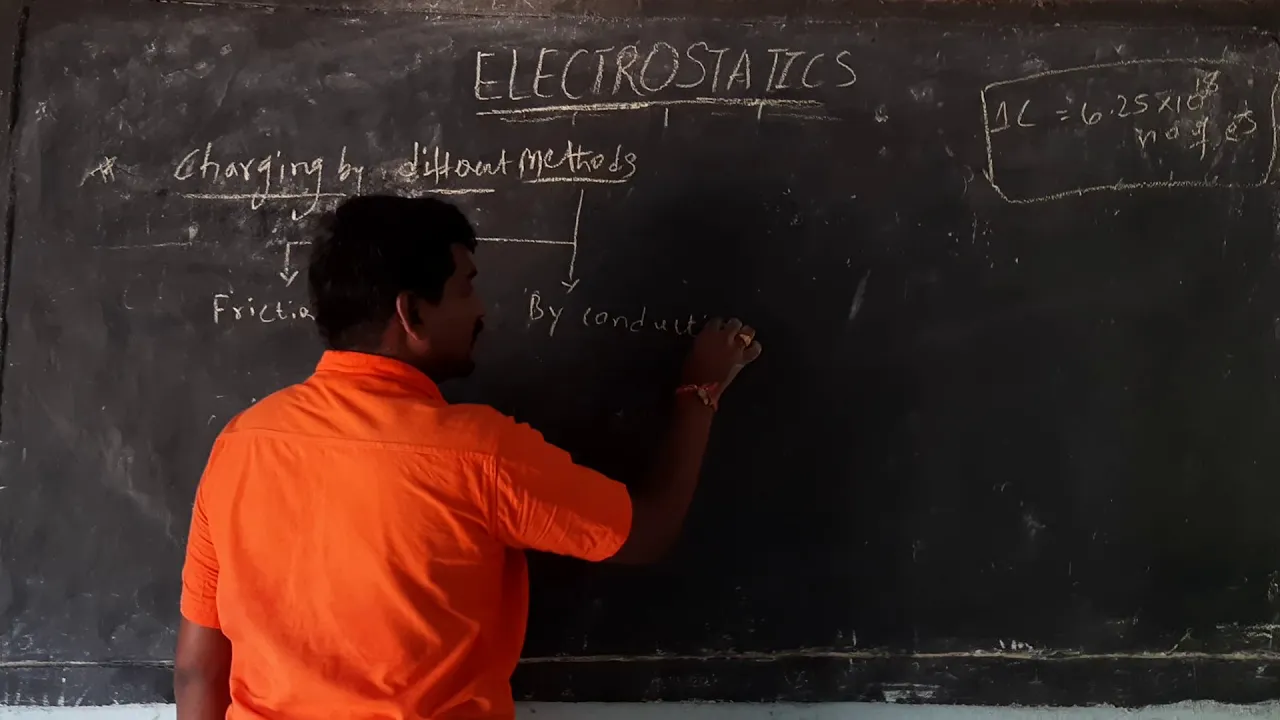 ELECTROSTATICS
1C = 6.25 × 10¹⁸
no of es
* Charging by different methods
Frictio
By conducti